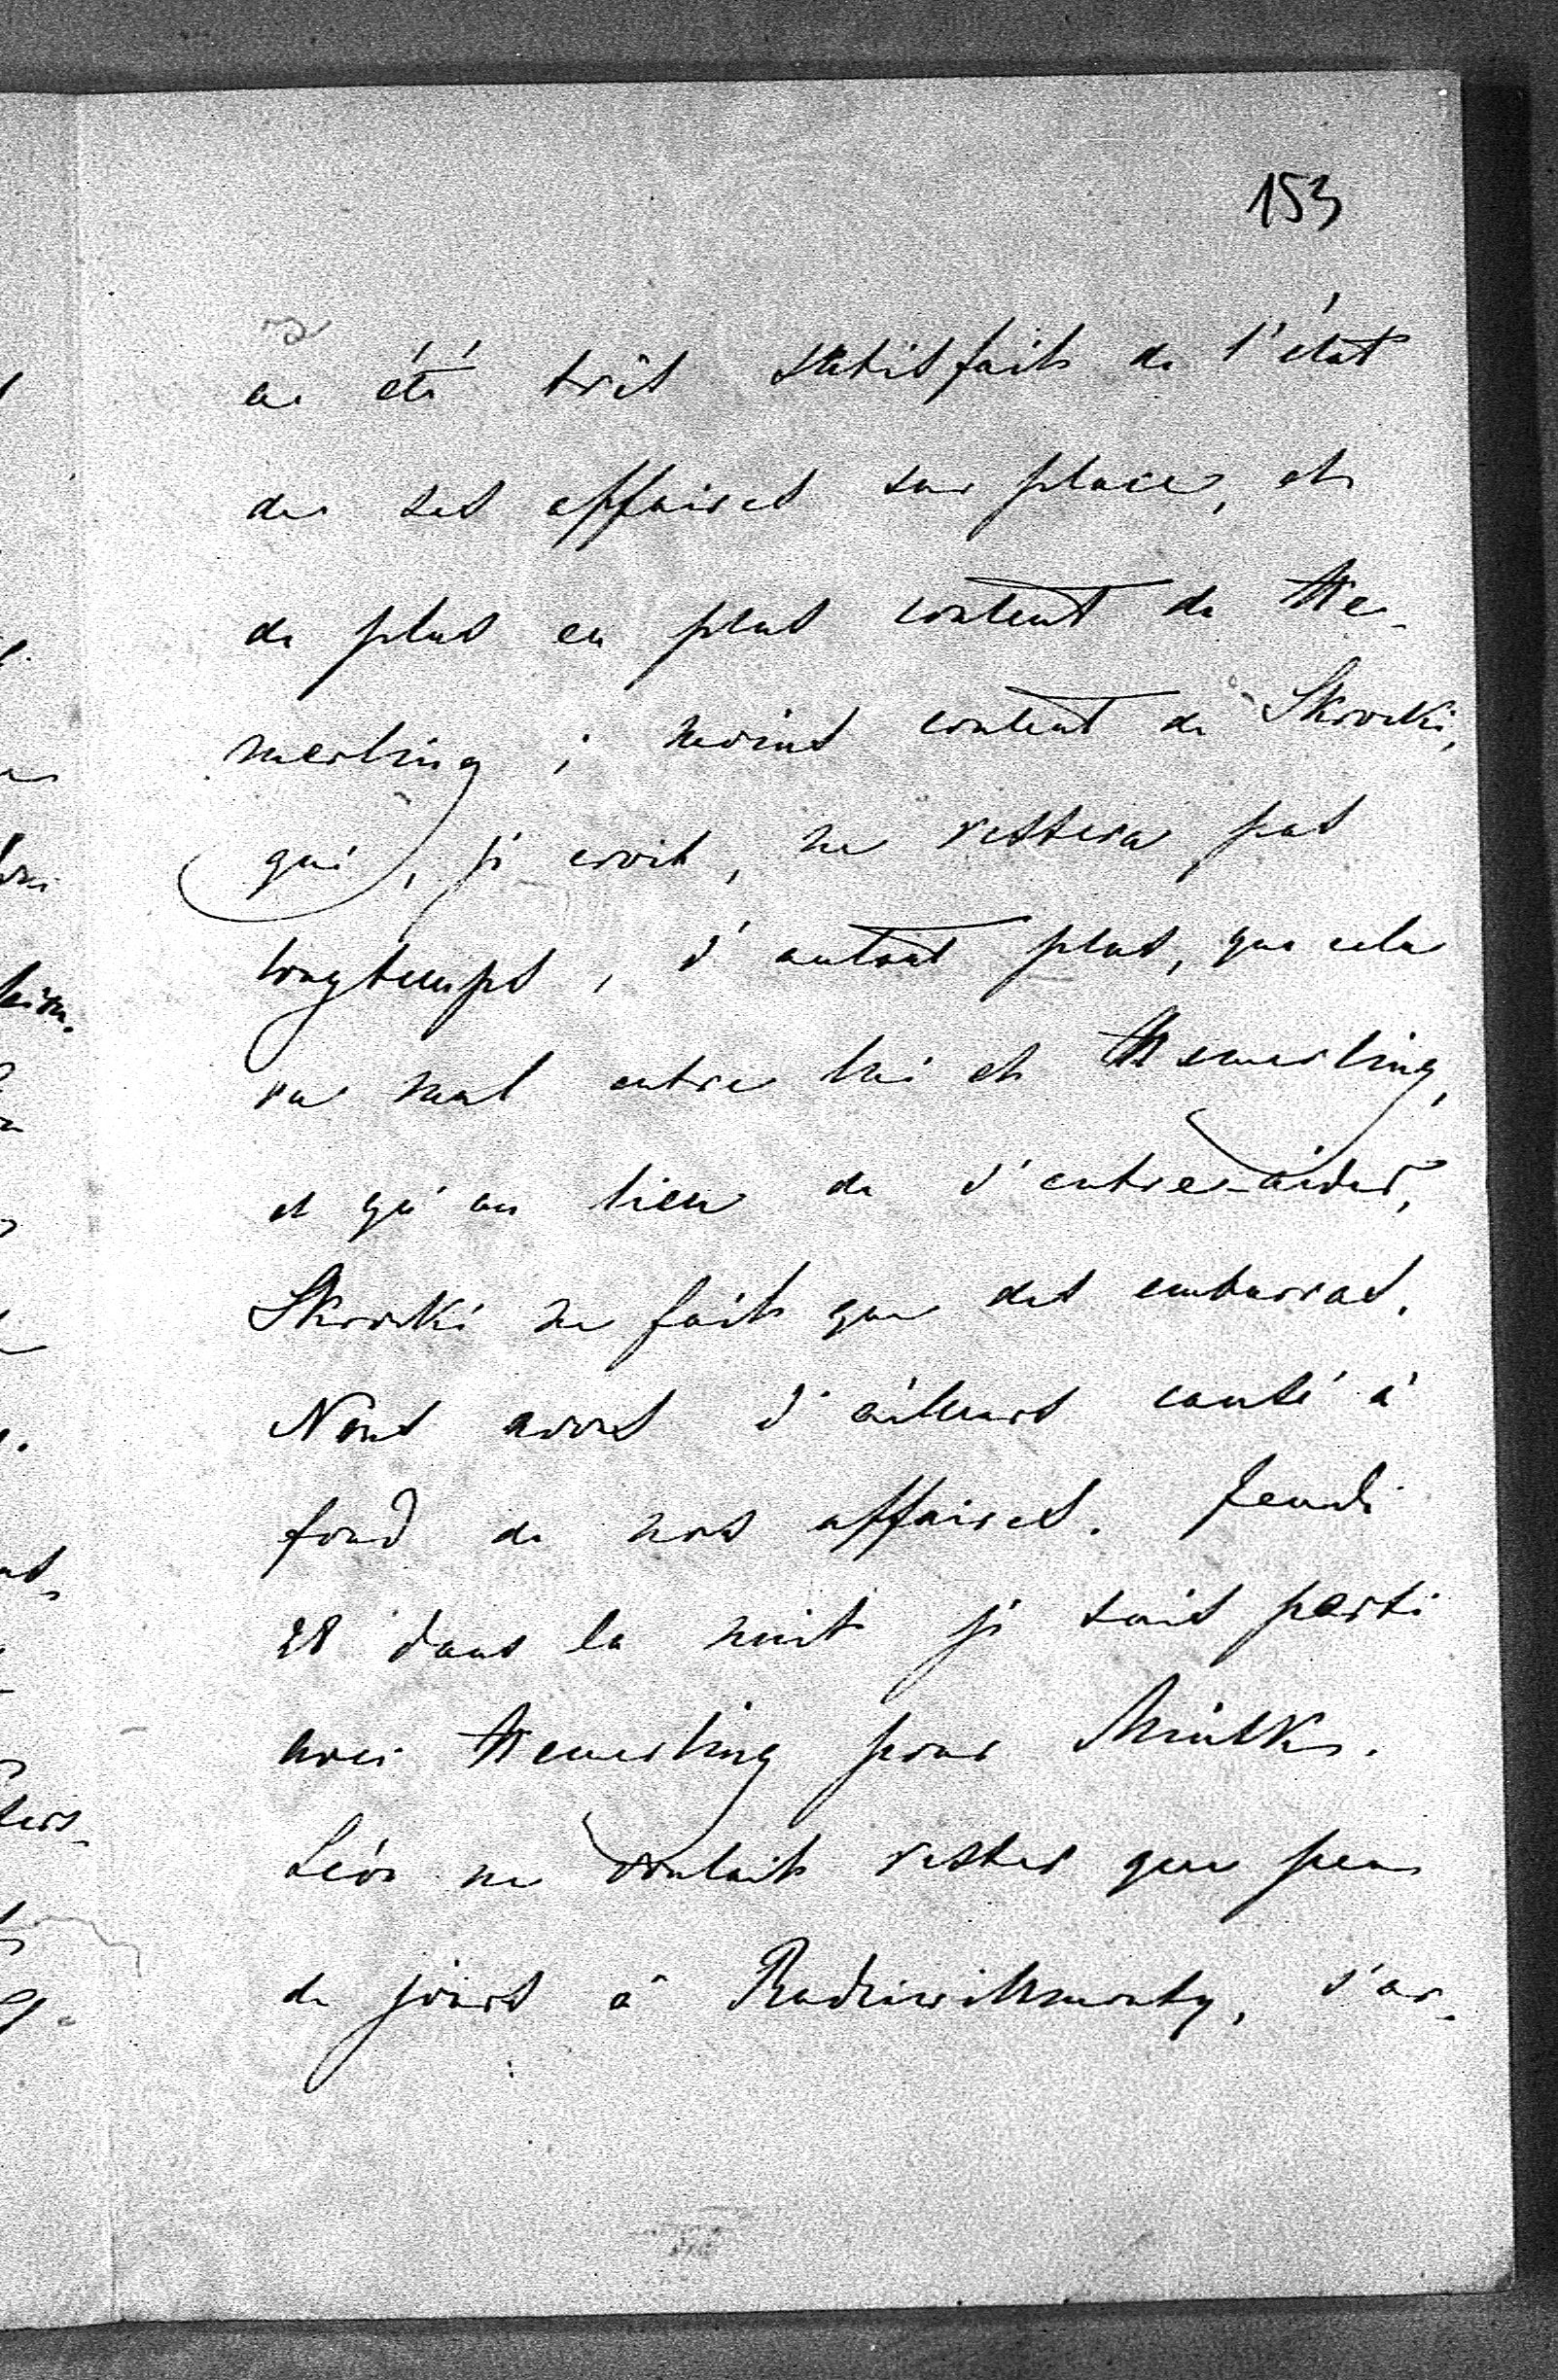 153
a été très satisfait de l'état
de ses affaires sur place, et
de plus en plus content de He-
merling ; moins content de Skirski,
qui, je crois, ne restera pas
longtemps, d'autant plus, que cela
va mal entre lui et Hemerling,
et qu'au lieu de s'entre-aider,
Skirski ne fait que des embarras.
Nous avons d'ailleurs causé à
fond de nos affaires. Jeudi
28 dans la nuit je suis parti
avec Hemerling pour Minsk.
Léon ne voulait rester que peu
de jours à Radziwillmonty, s'ar-